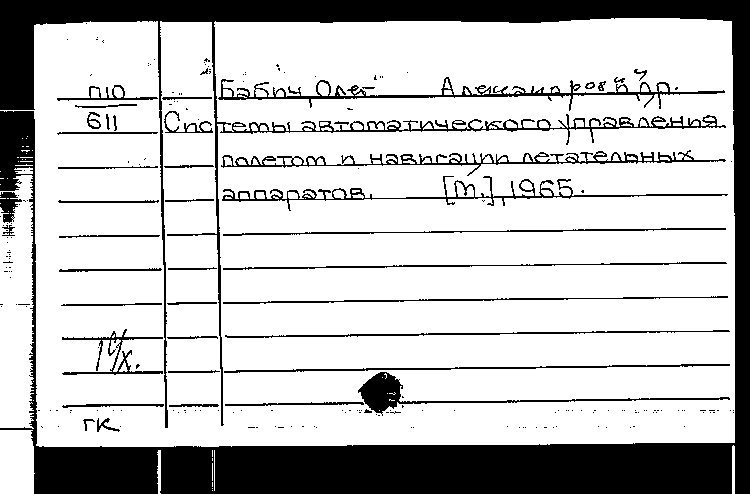 П10 Бабич, Олег Александрович и др.
611 Системы автоматического управления
полетом и навигации летательных
аппаратов. [М.], 1965.
ГК